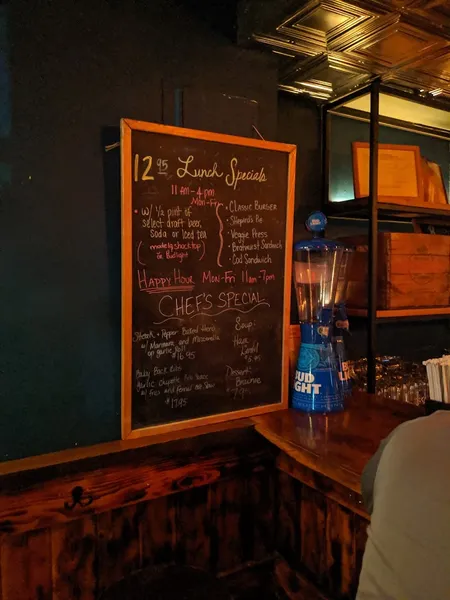 12 95 Lunch Specials
11am-4pm
Mon-Fri
• w/ 1/2 pint of
select draft beer,
soda or Iced tea
• Classic Burger
• Shepard's Pie
• Veggie Press
• Bratwurst Sandwich
• Cod Sandwich
Happy Hour Mon-Fri 11am-7pm
Chef's Special
Steak + Pepper Baked
w/ Marinara and Mozzarella
on garlic Roll
$16.95
Baby Back Ribs
Garlic Chipotle
w/ Fries and
$17.95
Soup:
Dessert:
Brownie
BUD
LIGHT